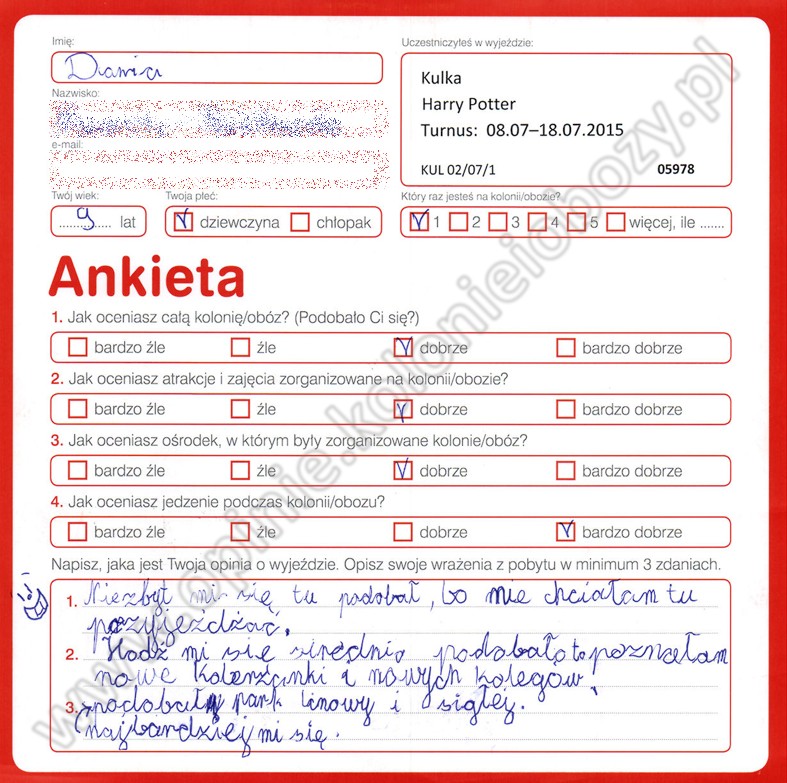 Imię:
Uczestniczyłeś w wyjeździe:
Daria
Kulka
Harry Potter
Turnus: 08.07–18.07.2015
KUL 02/07/1 05978
Nazwisko:
e-mail:
Twój wiek: Twoja płeć: Który raz jesteś na kolonii/obozie?
9 lat dziewczyna chłopak 1 2 3 4 5 więcej, ile .......
Ankieta
1. Jak oceniasz całą kolonię/obóz? (Podobało Ci się?)
bardzo źle źle dobrze bardzo dobrze
2. Jak oceniasz atrakcje i zajęcia zorganizowane na kolonii/obozie?
bardzo źle źle dobrze bardzo dobrze
3. Jak oceniasz ośrodek, w którym były zorganizowane kolonie/obóz?
bardzo źle źle dobrze bardzo dobrze
4. Jak oceniasz jedzenie podczas kolonii/obozu?
bardzo źle źle dobrze bardzo dobrze
Napisz, jaka jest Twoja opinia o wyjeździe. Opisz swoje wrażenia z pobytu w minimum 3 zdaniach.
1. Niezbyt mi się tu podobał, bo nie chciałam tu
przyjeżdżać.
2. Hodź mi się średnio podobało to poznałam
nowe koleżanki i nowych kolegów!
3. podobały park linowy i
(najbardziej mi się.
www.opinie.kolonieiobozy.pl